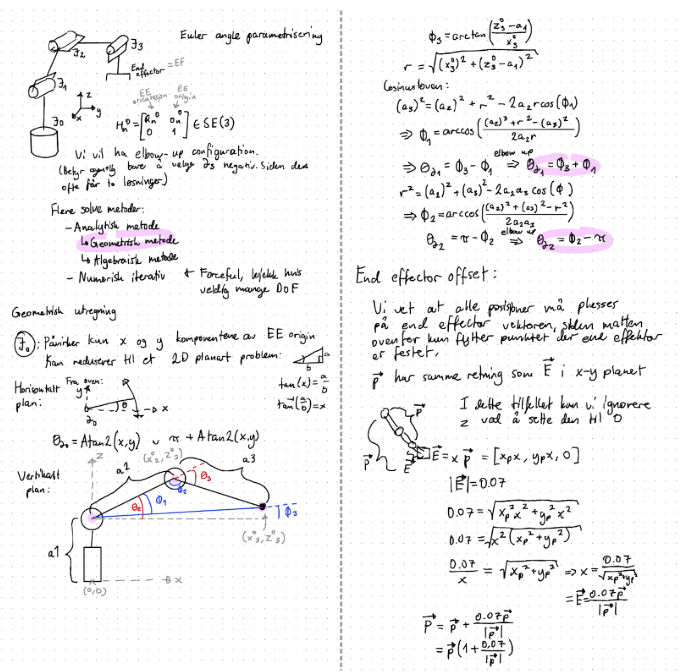 Euler angle parametrisering
J3
J2
End effector = EF
J1
z
y
x
J0
EE orientasjon
EE origin
H_n^0 = [R_n^0 0_n^0; 0 1] ∈ SE(3)
Vi vil ha elbow-up configuration.
(Betyr bare å velge θ3 negativ. Siden det
ofte får to løsninger)
Flere solve metoder:
- Analytisk metode
↳ Geometrisk metode
↳ Algebraisk metode
- Numerisk iterativ ← Forceful, kjekk hvis
veldig mange DoF
Geometrisk utregning
J0: Påvirker kun x og y komponentene av EE origin
Kan reduserer til et 2D planart problem:
a
b
Horisontalt plan:
Fra oven:
y
x
θ
J0
tan(x) = a/b
tan⁻¹(a/b) = x
θ_J0 = Atan2(x,y) ∪ π + Atan2(x,y)
Vertikalt plan:
z
a2
(x_2^0, z_2^0)
a3
θ3
Φ2
θ2
Φ1
Φ3
(x_3^0, z_3^0)
a1
(0,0)
x
Φ3 = arctan((z_3^0 - a1)/x_3^0)
r = √((x_3^0)² + (z_3^0 - a1)²)
Cosinusloven:
(a3)² = (a2)² + r² - 2a2 r cos(Φ1)
⇒ Φ1 = arccos(((a2)² + r² - (a3)²)/(2a2r))
⇒ θ_J1 = Φ3 - Φ1 elbow up ⇒ θ_J1 = Φ3 + Φ1
r² = (a2)² + (a3)² - 2a2a3 cos(Φ)
⇒ Φ2 = arccos(((a2)² + (a3)² - r²)/(2a2a3))
θ_J2 = π - Φ2 elbow up ⇒ θ_J2 = Φ2 - π
End effector offset:
Vi vet at alle posisjoner må plusses
på end effector vektoren, siden matten
ovenfor kun flytter punktet der end effektor
er festet.
p⃗ har samme retning som E⃗ i x-y planet
I dette tilfellet kan vi ignorere
z ved å sette den til 0
p⃗
P⃗
E⃗
E⃗ = x p⃗ = [x_p x, y_p x, 0]
|E⃗| = 0.07
0.07 = √(x_p² x² + y_p² x²)
0.07 = √(x²(x_p² + y_p²))
0.07/x = √(x_p² + y_p²) ⇒ x = 0.07/√(x_p² + y_p²)
= E⃗ = 0.07p⃗/|p⃗|
P⃗ = p⃗ + 0.07p⃗/|p⃗|
= p⃗(1 + 0.07/|p⃗|)